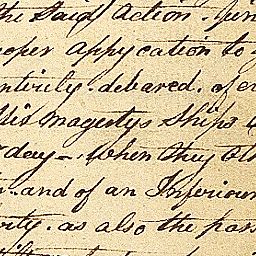 the Said Action.
proper appycation to
entirely. debared. of
His Magestys Ships
day - . When they
and of an Inferiour
as also the